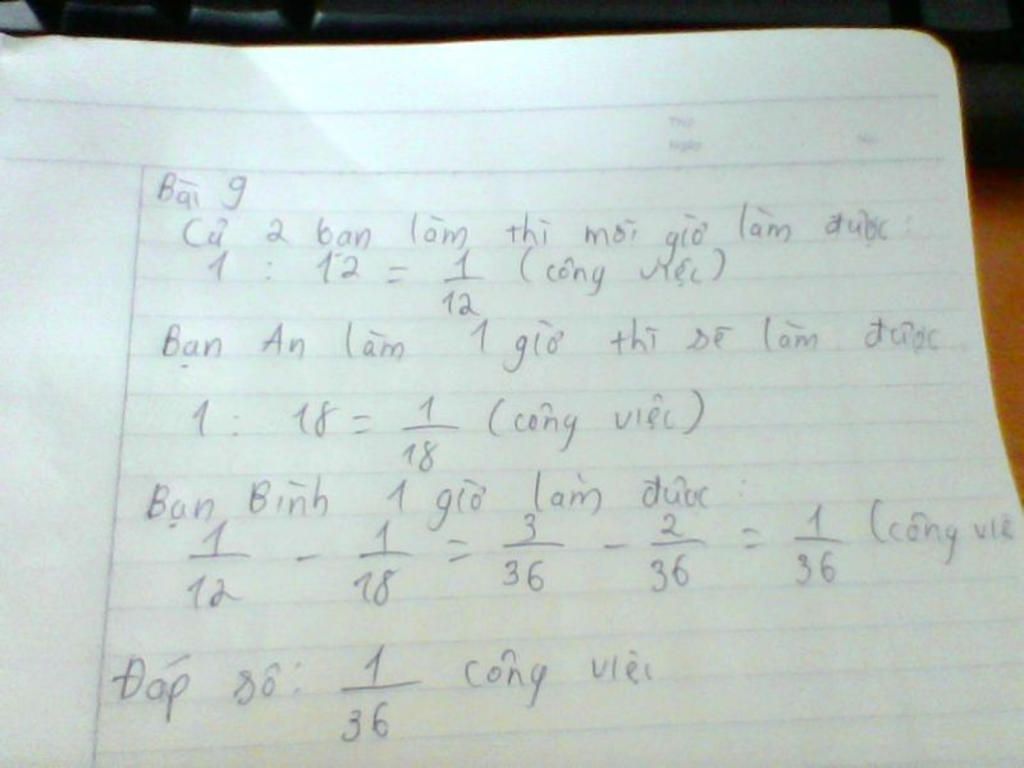 Bài 9
Cả 2 bạn làm thì mỗi giờ làm được:
1 : 12 = 1/12 (công việc)
Bạn An làm 1 giờ thì sẽ làm được
1 : 18 = 1/18 (công việc)
Bạn Bình 1 giờ làm được:
1/12 - 1/18 = 3/36 - 2/36 = 1/36 (công việ
Đáp số: 1/36 công việc